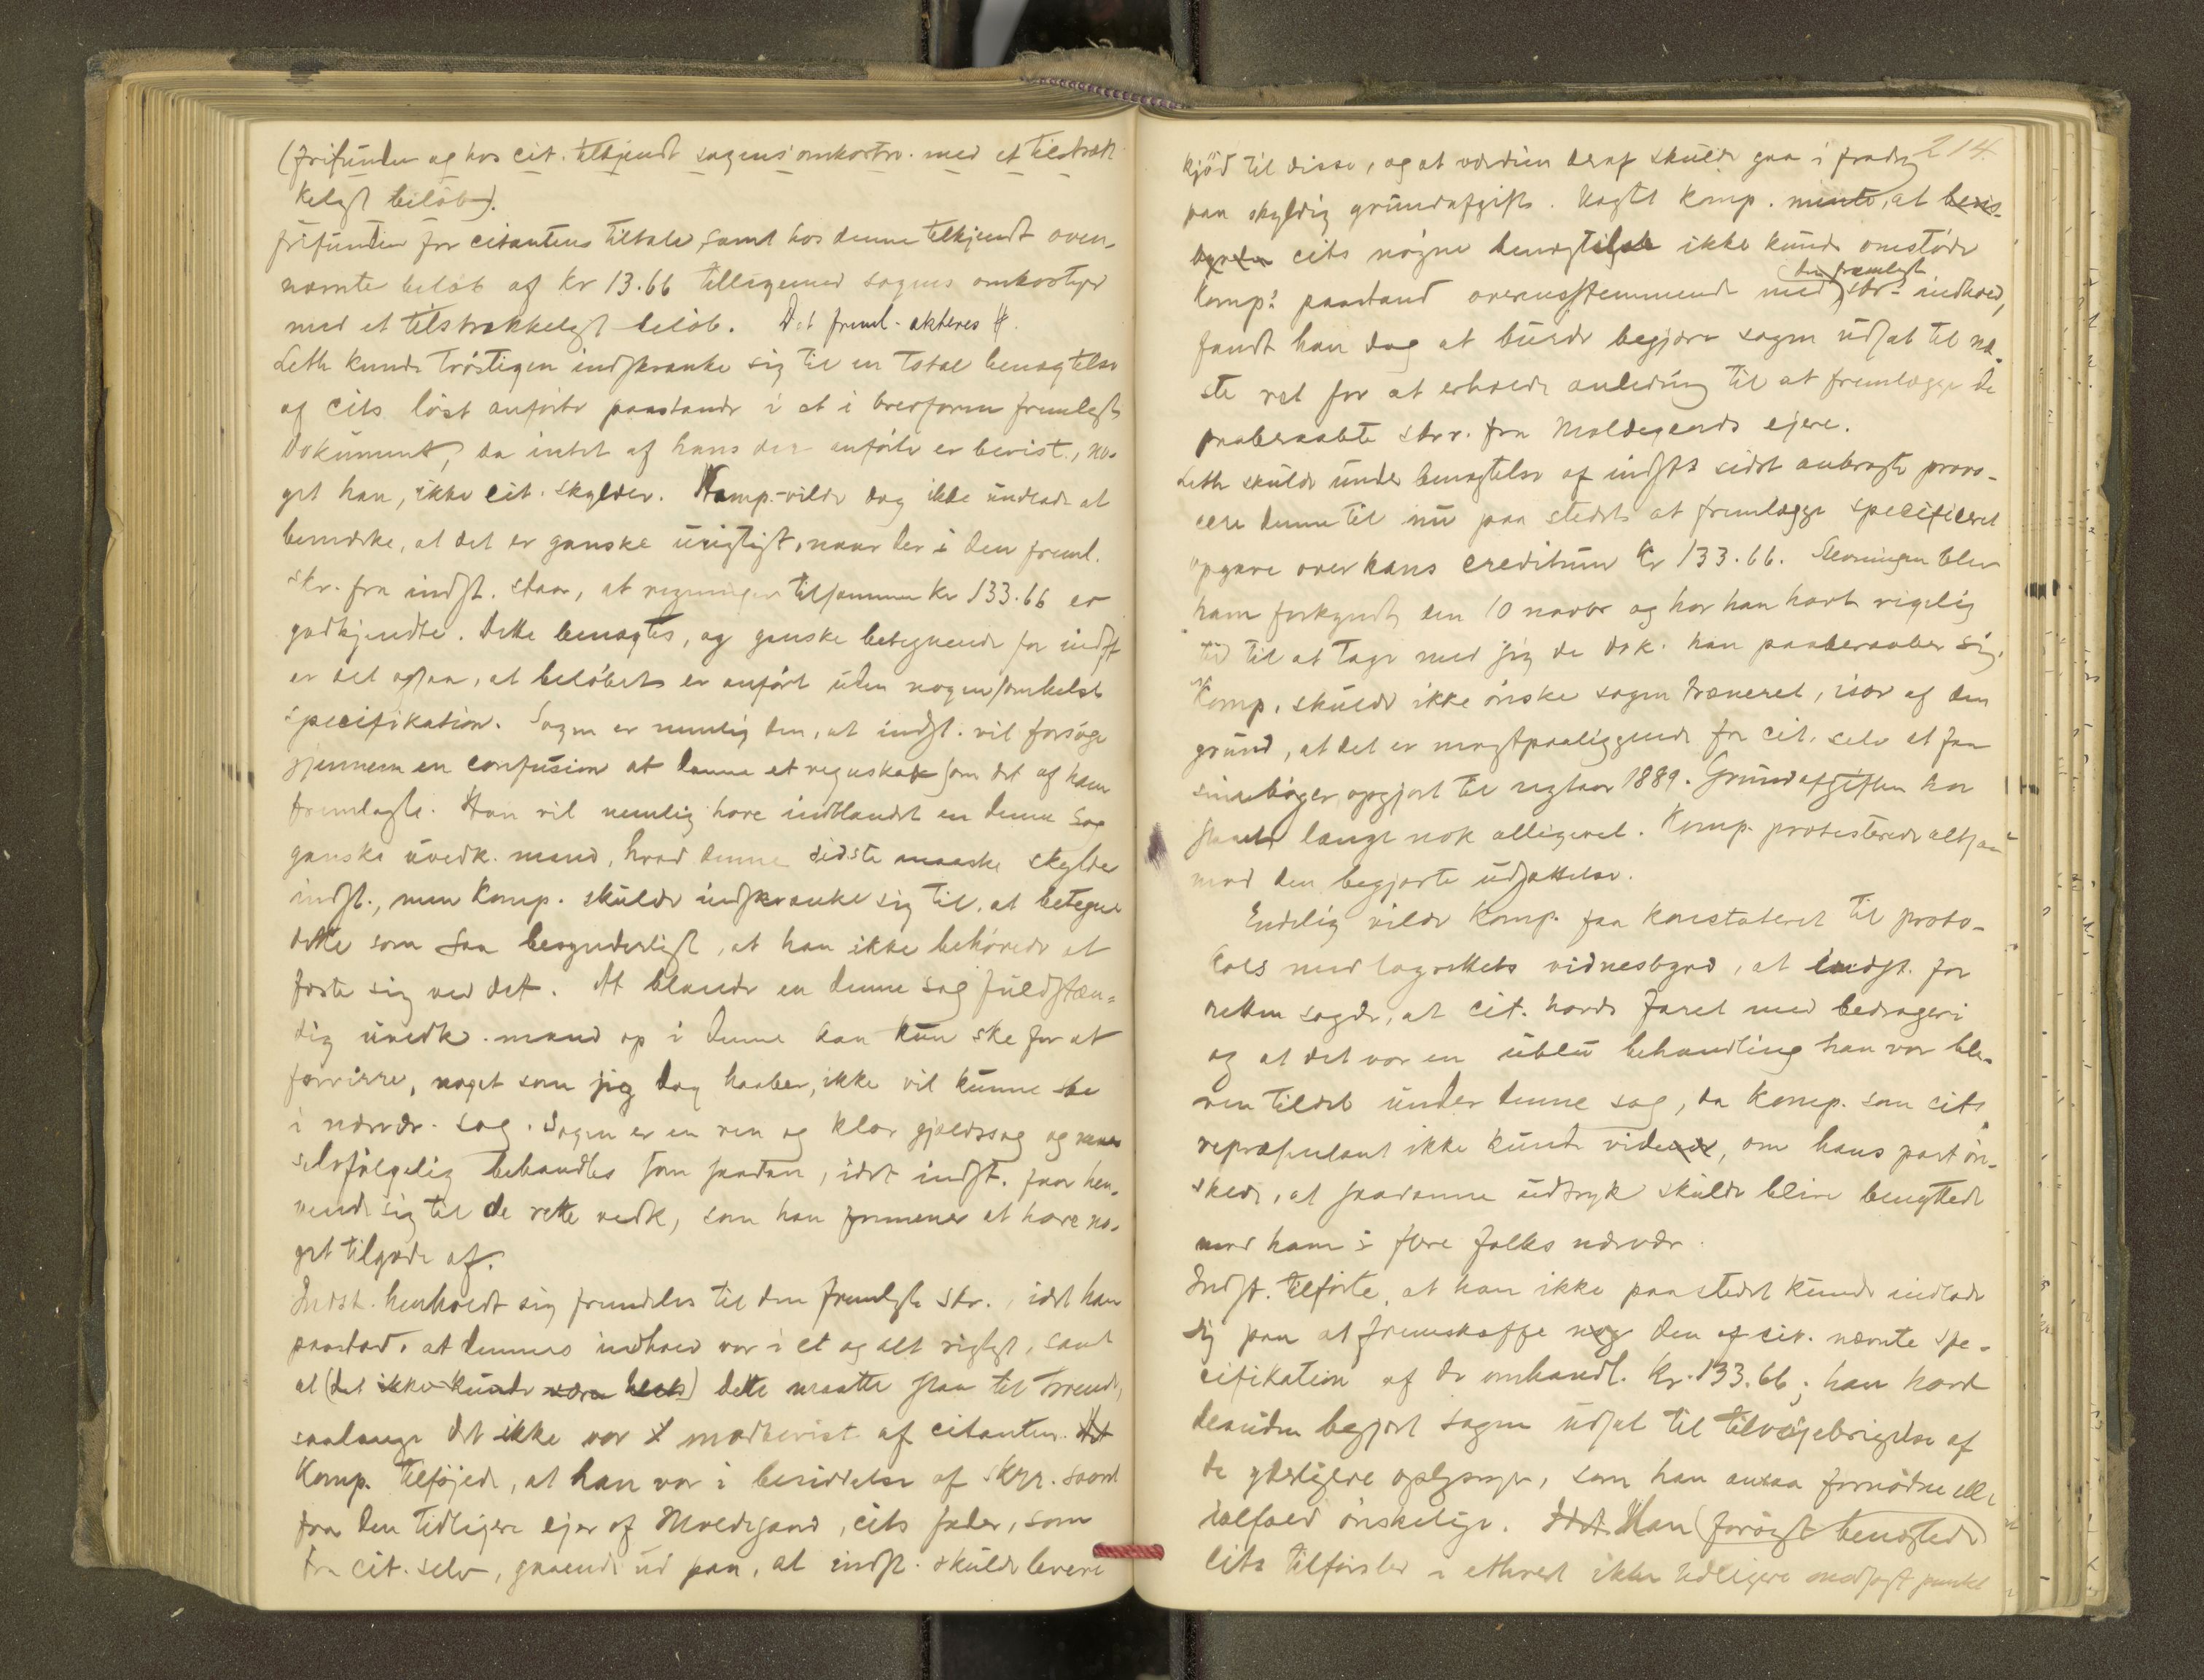 (frifunden og hos cit. tilkjendt sagens omkostn. med et tilstræk
keligt beløb).
frifunden for citantens tiltale samt hos denne tilkjendt oven-
nævnte beløb af Kr 13.66 tilligemed sagens omkostnger
med et tilstrækkeligt beløb. Det freml. akteres H.
Leth kunde trøstigen indskrænke sig til en total benægtelse
af cits løst anførte paastande i et i brevform fremlagt
dokument, da intet af hans der anførte er bevist, no-
get han, ikke cit. skylder. Komp. vilde dog ikke undlade at
bemærke, at det er ganske urigtigt, naar der i den freml.
skr. fra indst. staar, at regninger tilsammen Kr 133.66 er
godkjendte. Dette benægtes, og ganske betegnende for indst
er det ogsaa, at beløbet er anført uden nogensomhelst
specifikation. Sagen er nemlig den, at indst. vil forsøge
gjennem en confusion at danne et regnskab som det af ham
fremlagte. Han vil nemlig have indblandet en denne sag
ganske uvedk. mand, hvad denne sidste maaske skylder
indst., men Komp. skulde indskrænke sig til at betegne
dette som saa besynderligt, at han ikke behøvede at
fæste sig ved det. At blande en denne sag fuldstæn-
dig uvedk. mand op i denne kan kun ske for at
forvirre, noget som jeg dog haaber, ikke vil kunne ske
i nærvær. sag. Sagen er en ren og klar gjældssag og maa
selvfølgelig behandles som saadan, idet indst. faar hen-
vende sig til de rette vedk, som han formener at have no-
get tilgode af.
Indst. henholdt sig fremdeles til den fremlagte skr., idet han
paastod, at dennes indhold var i et og alt rigtigt, samt
at (det ikke kunde være ) dette maatte staa til troende,
saalænge det ikke var modbevist af citanten.
Komp. tilføjede, at han var i besiddelse af skrr. saavel
fra den tidligere ejer af Moldegaard, cits fader, som
fra cit. selv, gaaende ud paa, at indst. skulde levere
214.
kjød til disse, og at værdien deraf skulde gaa i fradrg
paa skyldig grundafgift. Uagtet Komp. mente, at bevis-
byrden cits nøgne benægtelse ikke kunde omstøde
den fremlagte
Komps paastand overensstemmende med skrs indhold,
fandt han dog at burde begjære sagen udsat til næ-
ste ret for at erholde anledning til at fremlægge de
paaberaabte skrr. fra Moldegaards ejere.
Leth skulde under benægtelse af indsts sidst anbragte provo-
cere denne til nu paa stedet at fremlægge specificeret
opgave over hans creditum Kr 133.66. Stevningen blev
ham forkyndt den 10 novbr og har han havt rigelig
tid til at tage med sig de dok. han paaberaaber sig.
Komp. skulde ikke ønske sagen træneret, især af den
grund, at det er magtpaaliggende for cit. selv at faa
sine bøger opgjort til nytaar 1889. Grundafgiften har
staaet længe nok alligevel. Komp. protesterede altsaa
mod den begjærte udsættelse.
Endelig vilde Komp. faa konstateret til proto-
cols med lagrettets vidnesbyrd, at indst. for
retten sagde, at cit. havde faret med bedrageri
og at det var en ublu behandling han var ble-
ven tildel under denne sag, da Komp. som cits
repræsentant ikke kunde vide, om hans part øn-
skede, at saadanne udtryk skulde blive benyttede
mod ham i flere folks nærvær.
Indst. tilførte, at han ikke paa stedet kunde indlade
sig paa at fremskaffe den af cit. nævnte spe-
cifikation af de omhandl. Kr. 133.66; han havde
desuden begjært sagen udsat til tilvejebringelse af
de yderligere oplysngr, som han ansaa fornødne eller
ialfald ønskelige. Han (forøvrigt benægtede)
cits tilførsler i ethvert ikke tidligere modsagt punkt